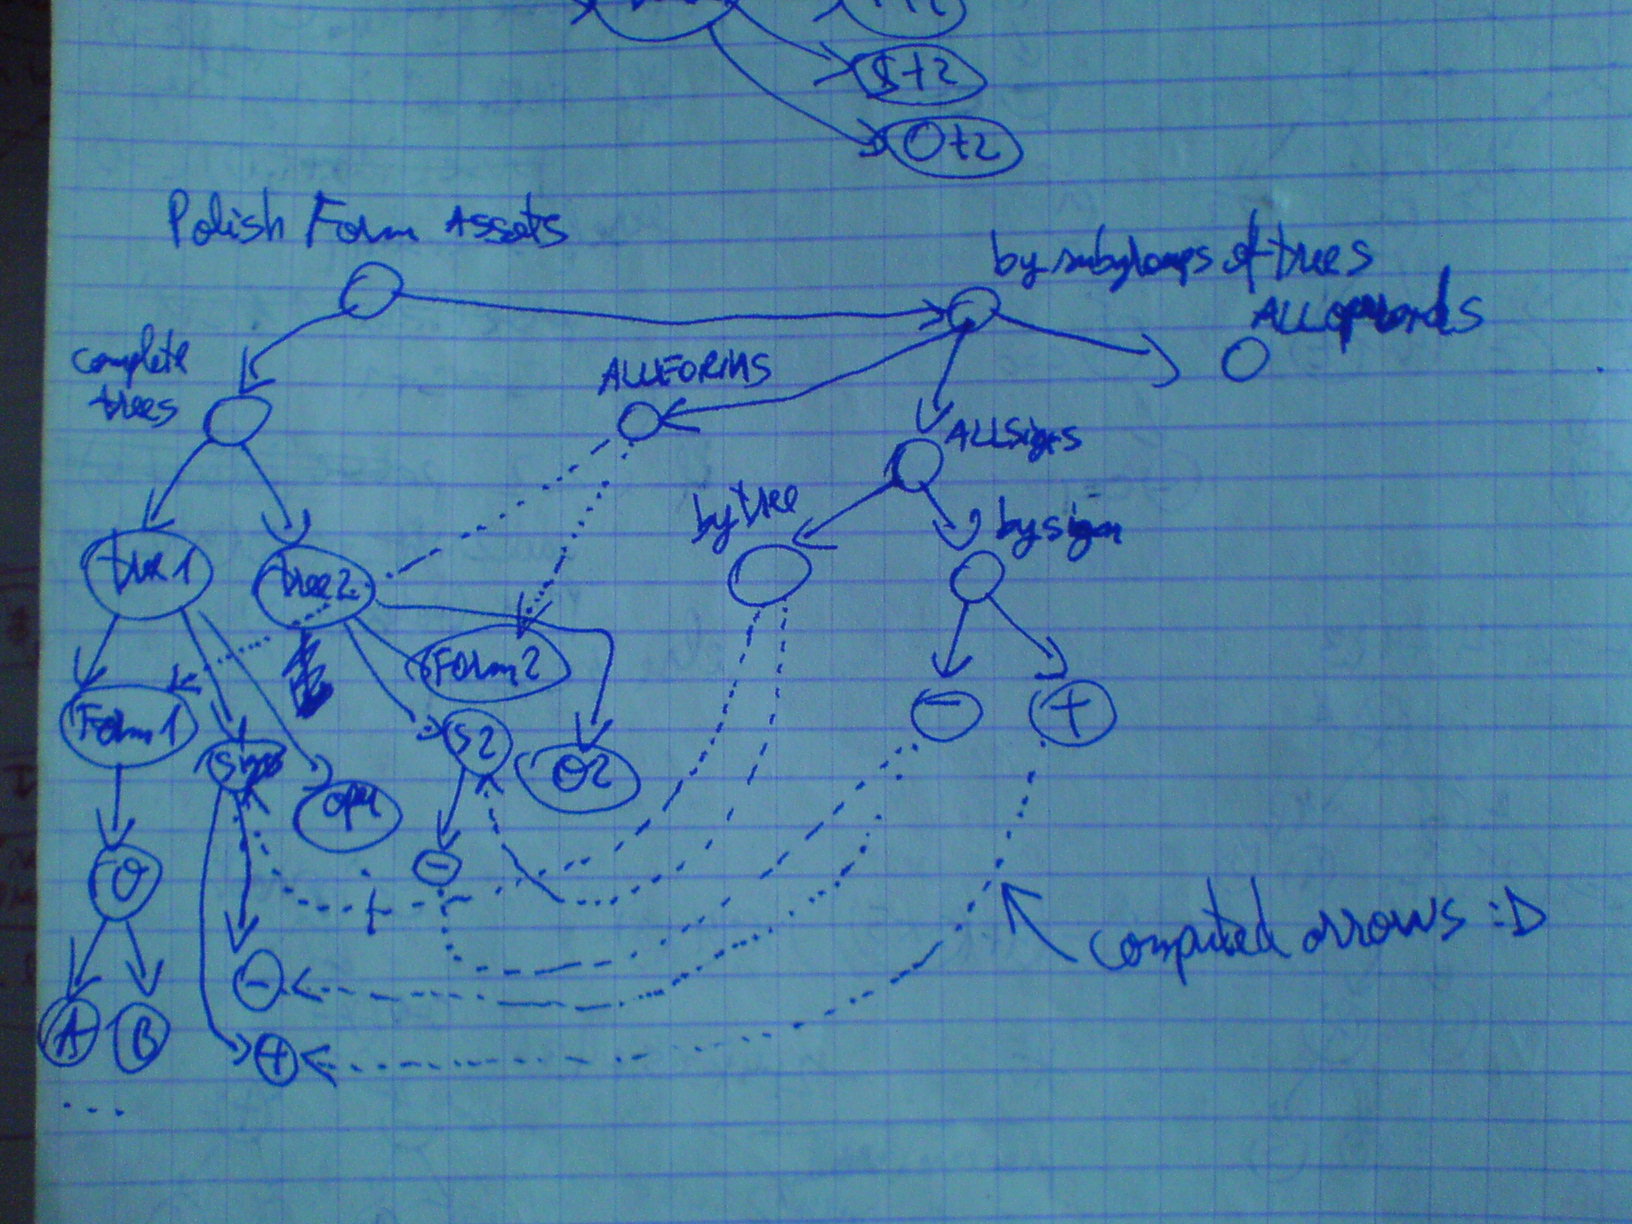 $t2
Ot2
Polish Form Assets
by subgroups of trees
ALL operands
complete
trees
ALLFORMS
ALLSigns
by tree
by sign
tree1
tree2
Form2
Form1
S2
O2
signs
ope
-
+
-
O
-
+
A
B
computed arrows :D
...